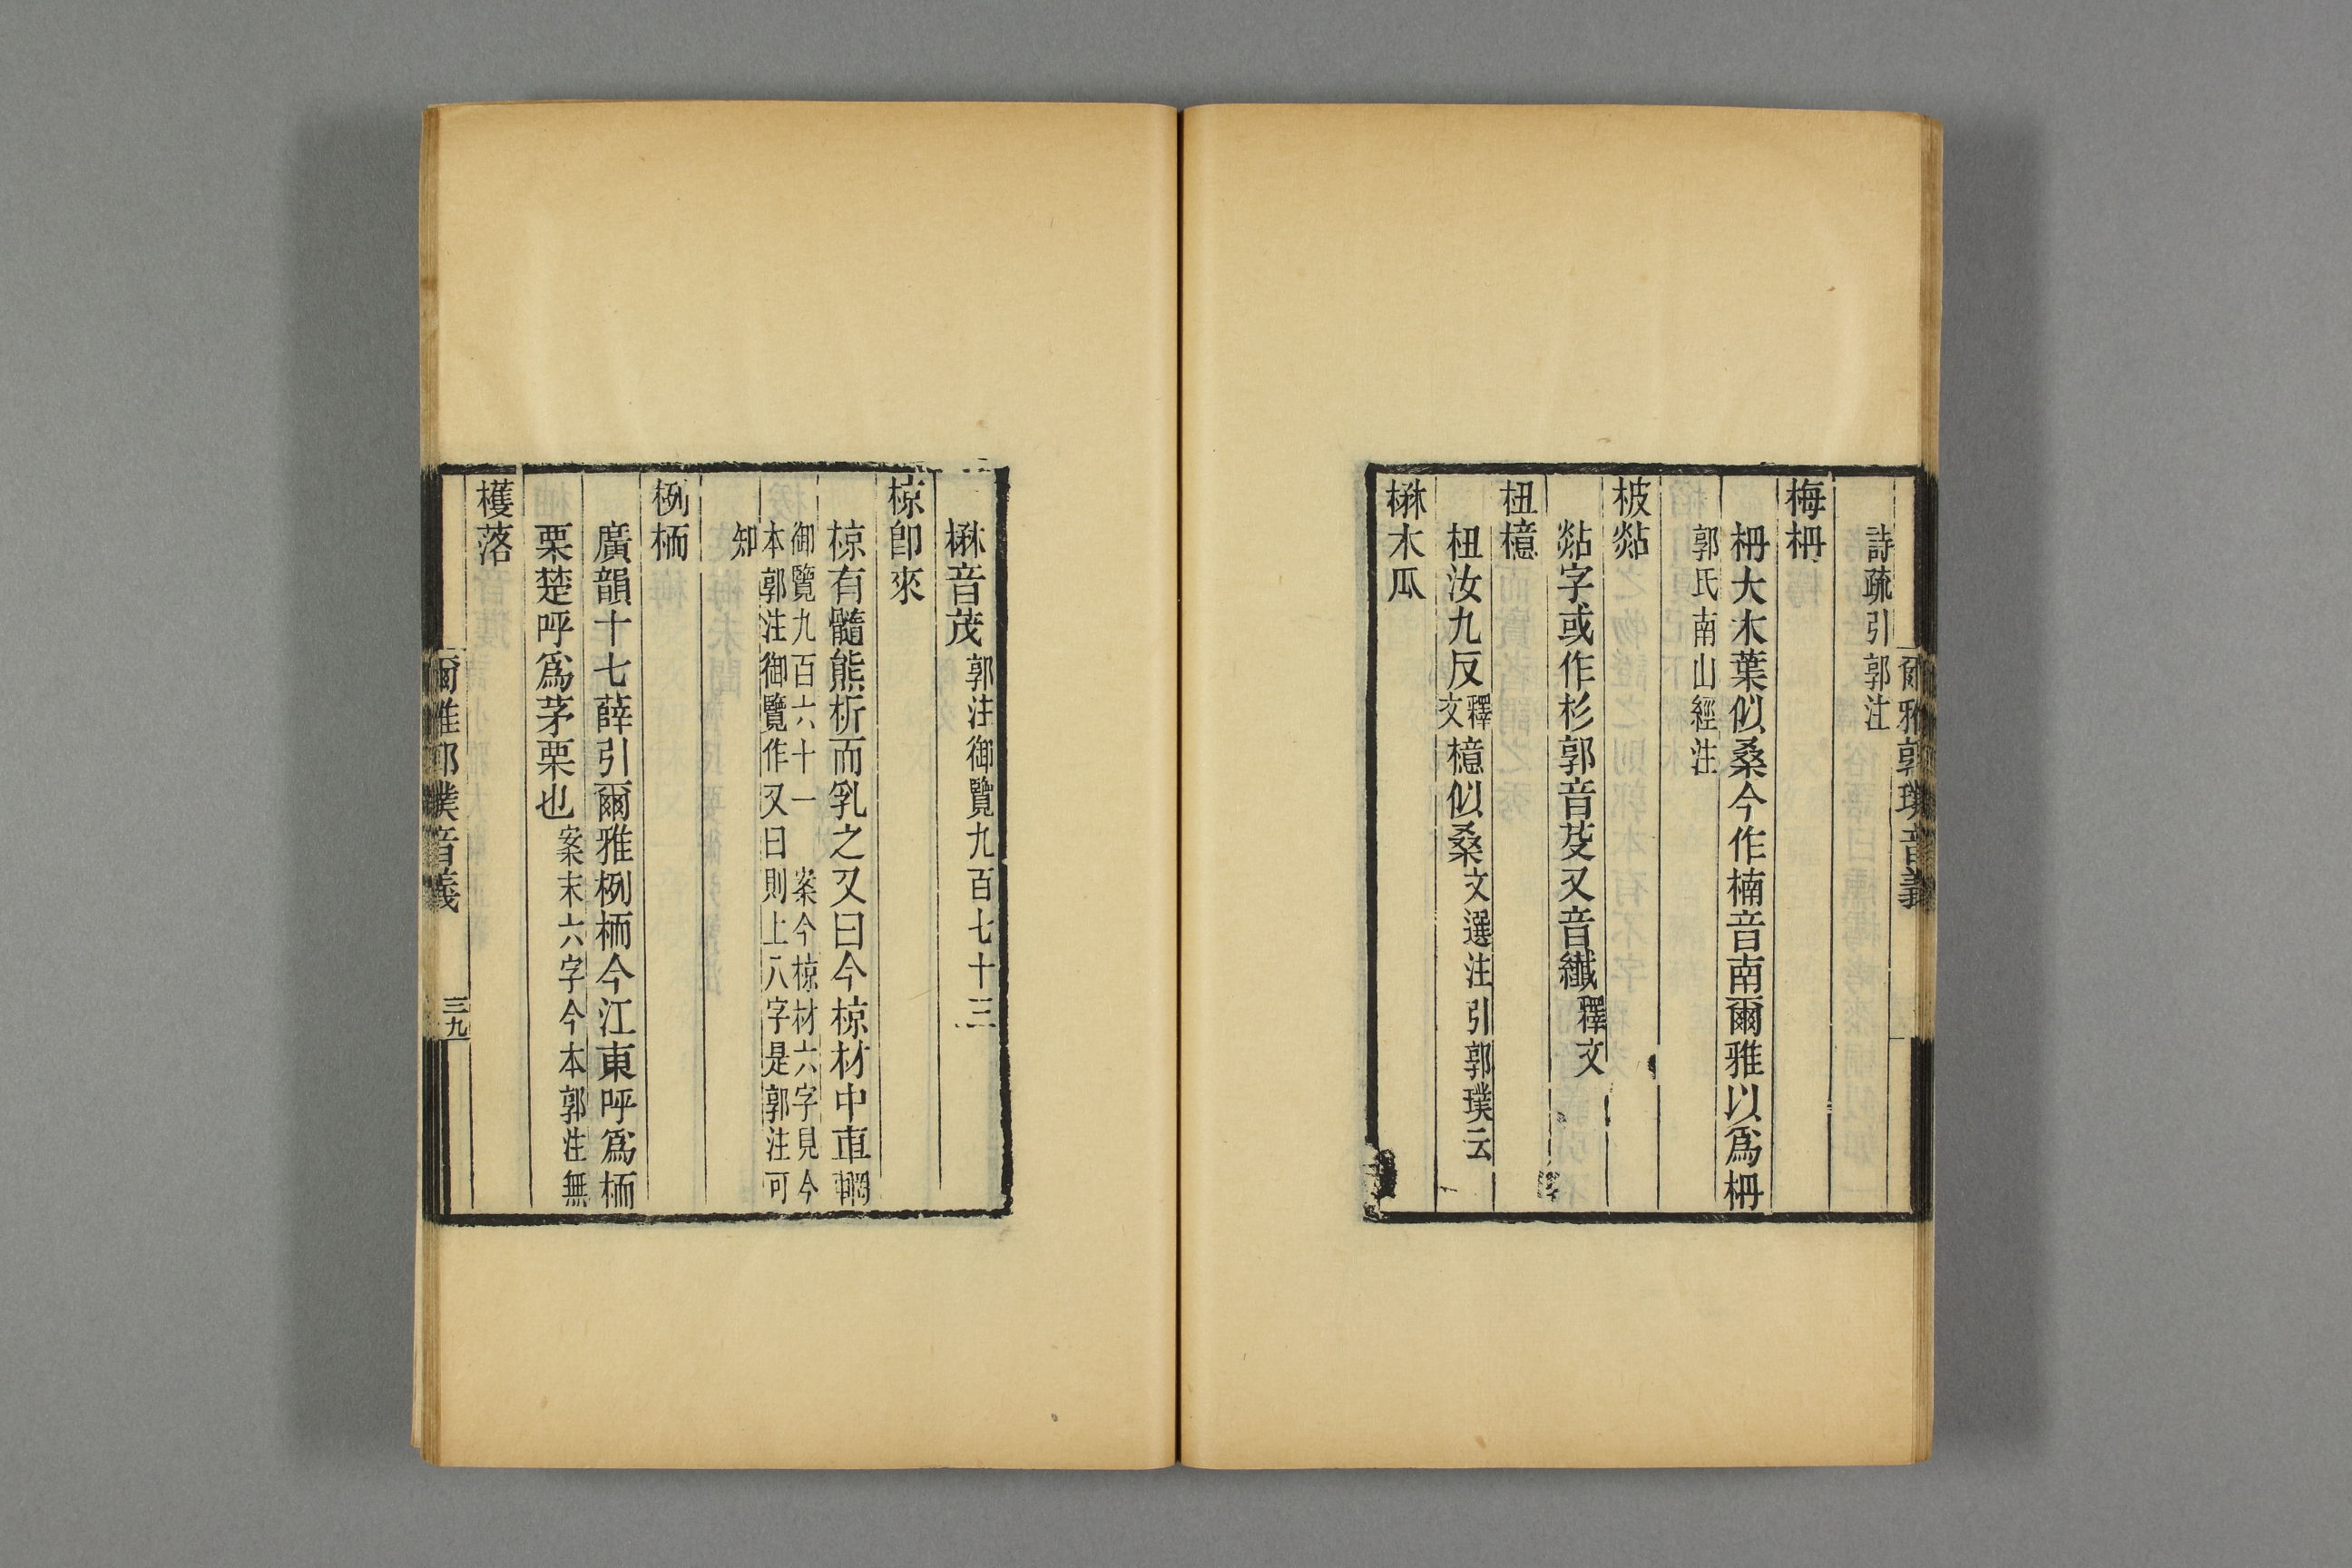 爾雅郭璞音義
詩疏引郭注
梅柟
柟大木葉似桑今作楠音南爾雅以爲柟
郭氏南山經注
柀煔
煔字或作杉郭音芟又音纖釋文
杻檍
杻汝九反釋文檍似桑文選注引郭璞云
楙木瓜
楙音茂郭注御覽九百七十三
椋卽來
椋有髓熊析而乳之又曰今椋材中車輞
御覽九百六十一 案今椋材六字見今
本郭注御覽作又曰則上八字是郭注可
知
栵栭
廣韻十七薛引爾雅栵栭今江東呼爲栭
栗楚呼爲茅栗也案末六字今本郭注無
檴落
爾雅郭璞音義
三九